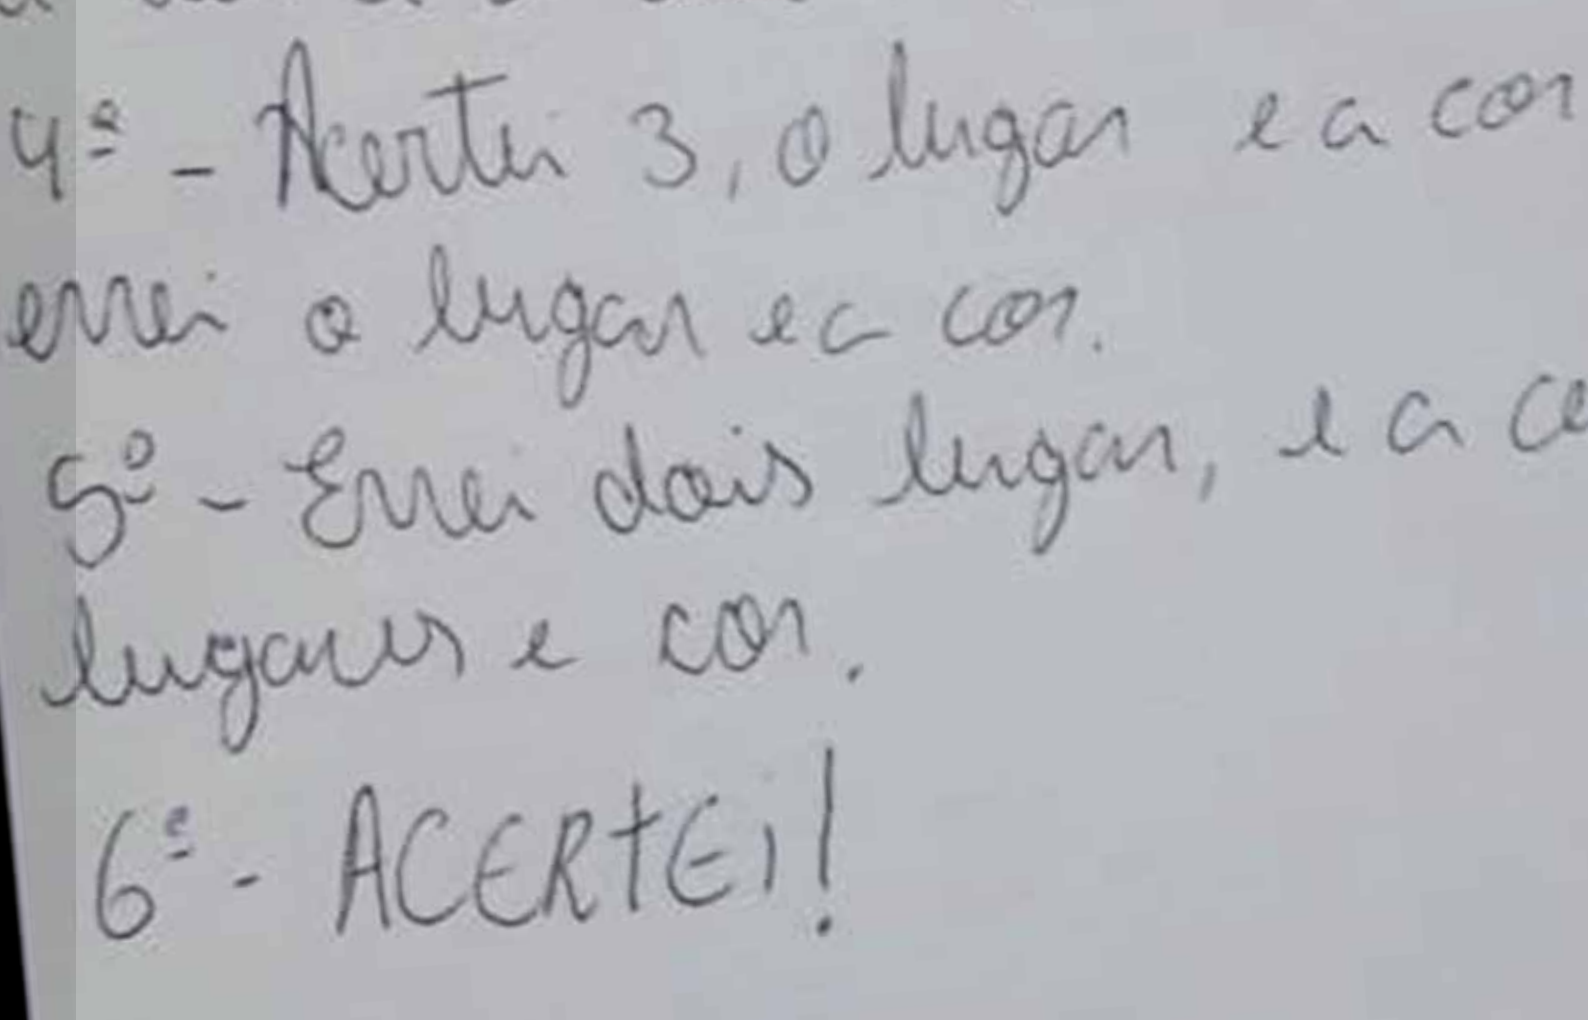 4ª - Acertei 3, o lugar e a cor
errei o lugar e a cor.
5º - Errei dois lugar, e a
lugares e cor.
6ª - ACERTEI!